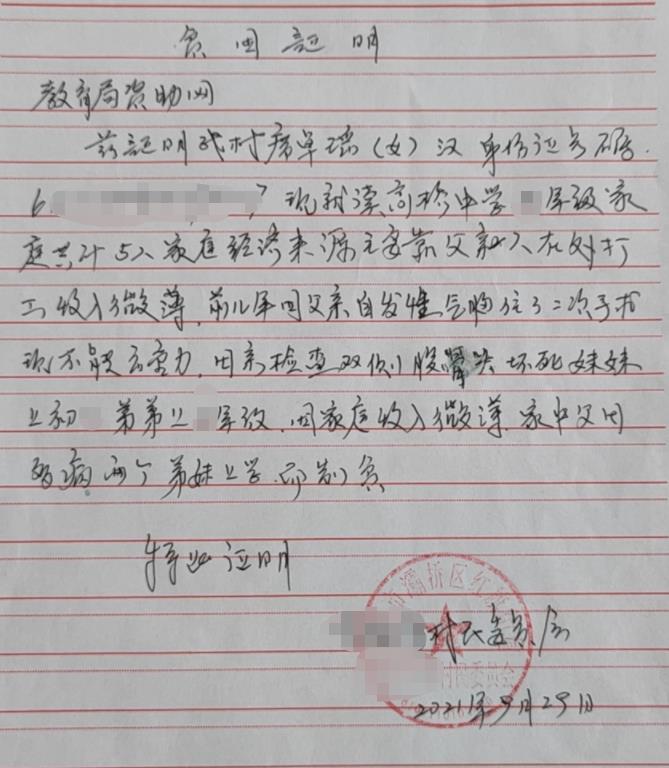 贫困证明
教育局资助网
兹证明我村席卓瑶(女)汉 身份证号码
6 7 现就读高 中学 年级家
庭共计5人家庭经济来源主要靠父亲一人在外打
工收入微薄,前几年因父亲自发性气胸住了二次手术
现不能 力,因 检查双侧股骨头坏死妹妹
上初 弟弟上 年级,因家庭收入微薄,家中父
病 两个弟妹上学,
特此证明
村民委员会
2021年9月29日
市灞桥区红旗
村民委员会